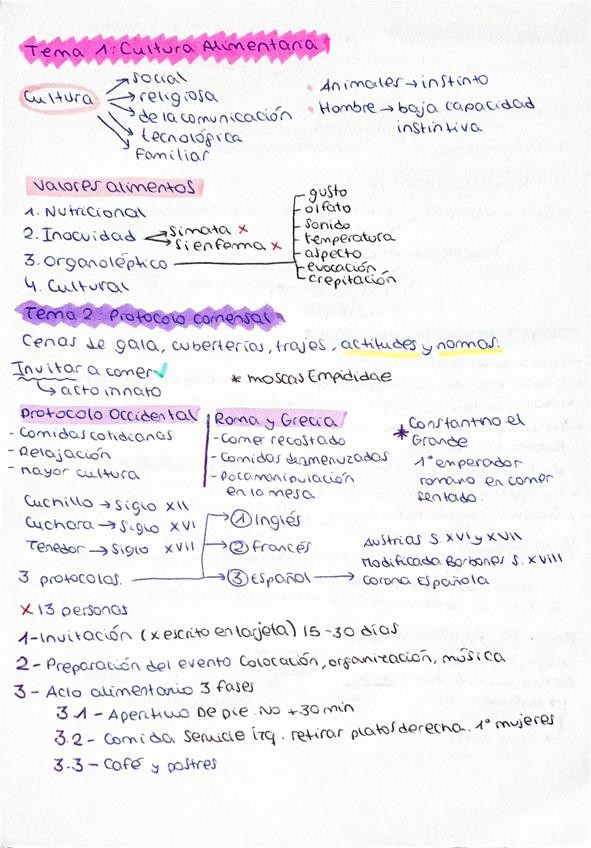 Tema 1: Cultura Alimentaria
Cultura
social
religiosa
de la comunicación
tecnológica
familiar
• Animales → instinto
• Hombre → baja capacidad
instintiva
Valores alimentos
1. Nutricional
2. Inocuidad
si mata x
si enferma x
3. Organoléptico
4. Cultural
gusto
olfato
sonido
temperatura
aspecto
evocación
crepitación
Tema 2: Protocolo comensal
Cenas de gala, cuberterías, trajes, actitudes y normas.
Invitar a comer ✓
↳ acto innato
* moscas Empididae
Protocolo Occidental
- Comidas cotidianas
- Relajación
- Mayor cultura
Roma y Grecia
- Comer recostado
- Comidas desmenuzadas
- Poca manipulación
en la mesa
* Constantino el
Grande
1º emperador
romano en comer
sentado.
Cuchillo → Siglo XII
Cuchara → Siglo XVI
Tenedor → Siglo XVII
3 protocolos.
① Inglés
② Francés
③ Español
Austrias S. XVI y XVII
Modificada Borbones S. XVIII
Corona Española
x 13 personas
1- Invitación (x escrito en tarjeta) 15-30 días
2- Preparación del evento Colocación, organización, música
3- Acto alimentario 3 fases
3.1- Aperitivo De pie. No +30 min
3.2- Comida. Servicio izq. retirar platos derecha. 1º mujeres
3.3- Café y postres